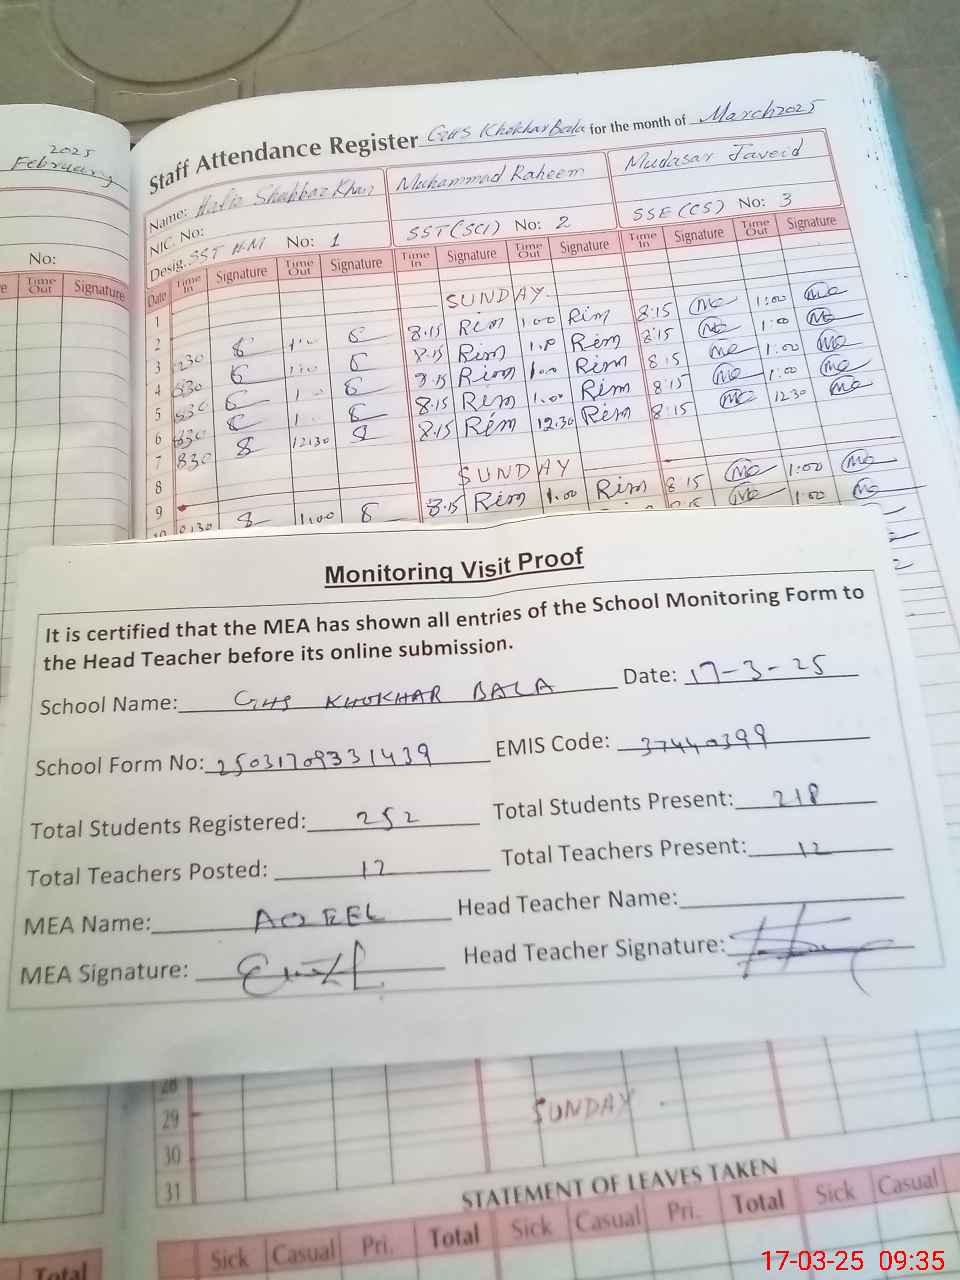 2025
February
No:
Time Out Signature
Staff Attendance Register GHS Khokhar Bala for the month of March 2025
Name: Hafiz Shahbaz Khan Muhammad Raheem Mudasar Javeid
NIC. No:
Desig. SST H.M No: 1 SST (SCI) No: 2 SSE (CS) No: 3
Date Time In Signature Time Out Signature Time In Signature Time Out Signature Time In Signature Time Out Signature
1
2 SUNDAY
3 830 8:15 Rim 1:00 Rim 8:15 1:00
4 830 8:15 Rim Rim 8:15 1:00
5 830 8:15 Rim 1:00 Rim 8:15 1:00
6 830 8:15 Rim 1.00 Rim 8:15 1:00
7 830 12:30 8:15 Rim 12.30 Rim 8:15 1230
8
9 SUNDAY
10 8:30 1:00 8:15 Rim 1.00 Rim 8 15 1:00
1:00
Monitoring Visit Proof
It is certified that the MEA has shown all entries of the School Monitoring Form to
the Head Teacher before its online submission.
School Name: GHS KHOKHAR BALA Date: 17-3-25
School Form No: 25031709331439 EMIS Code: 37440399
Total Students Registered: 252 Total Students Present: 218
Total Teachers Posted: 12 Total Teachers Present: 12
MEA Name: AQEEL Head Teacher Name:
MEA Signature: Head Teacher Signature:
28
29
30 SUNDAY
31
STATEMENT OF LEAVES TAKEN
Total Sick Casual Pri. Total Sick Casual Pri. Total Sick Casual
17-03-25 09:35